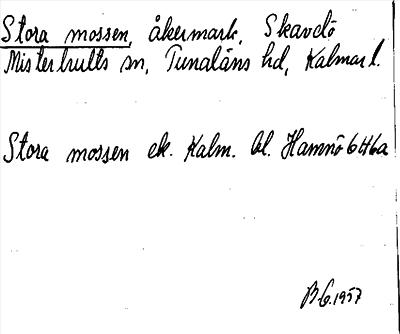 Stora mossen, åkermark, Skavdö
Misterhults sn, Tunaläns hd, Kalmar l.
Stora mossen ek. Kalm. bl. Hamnö 6H6a
B G. 1957